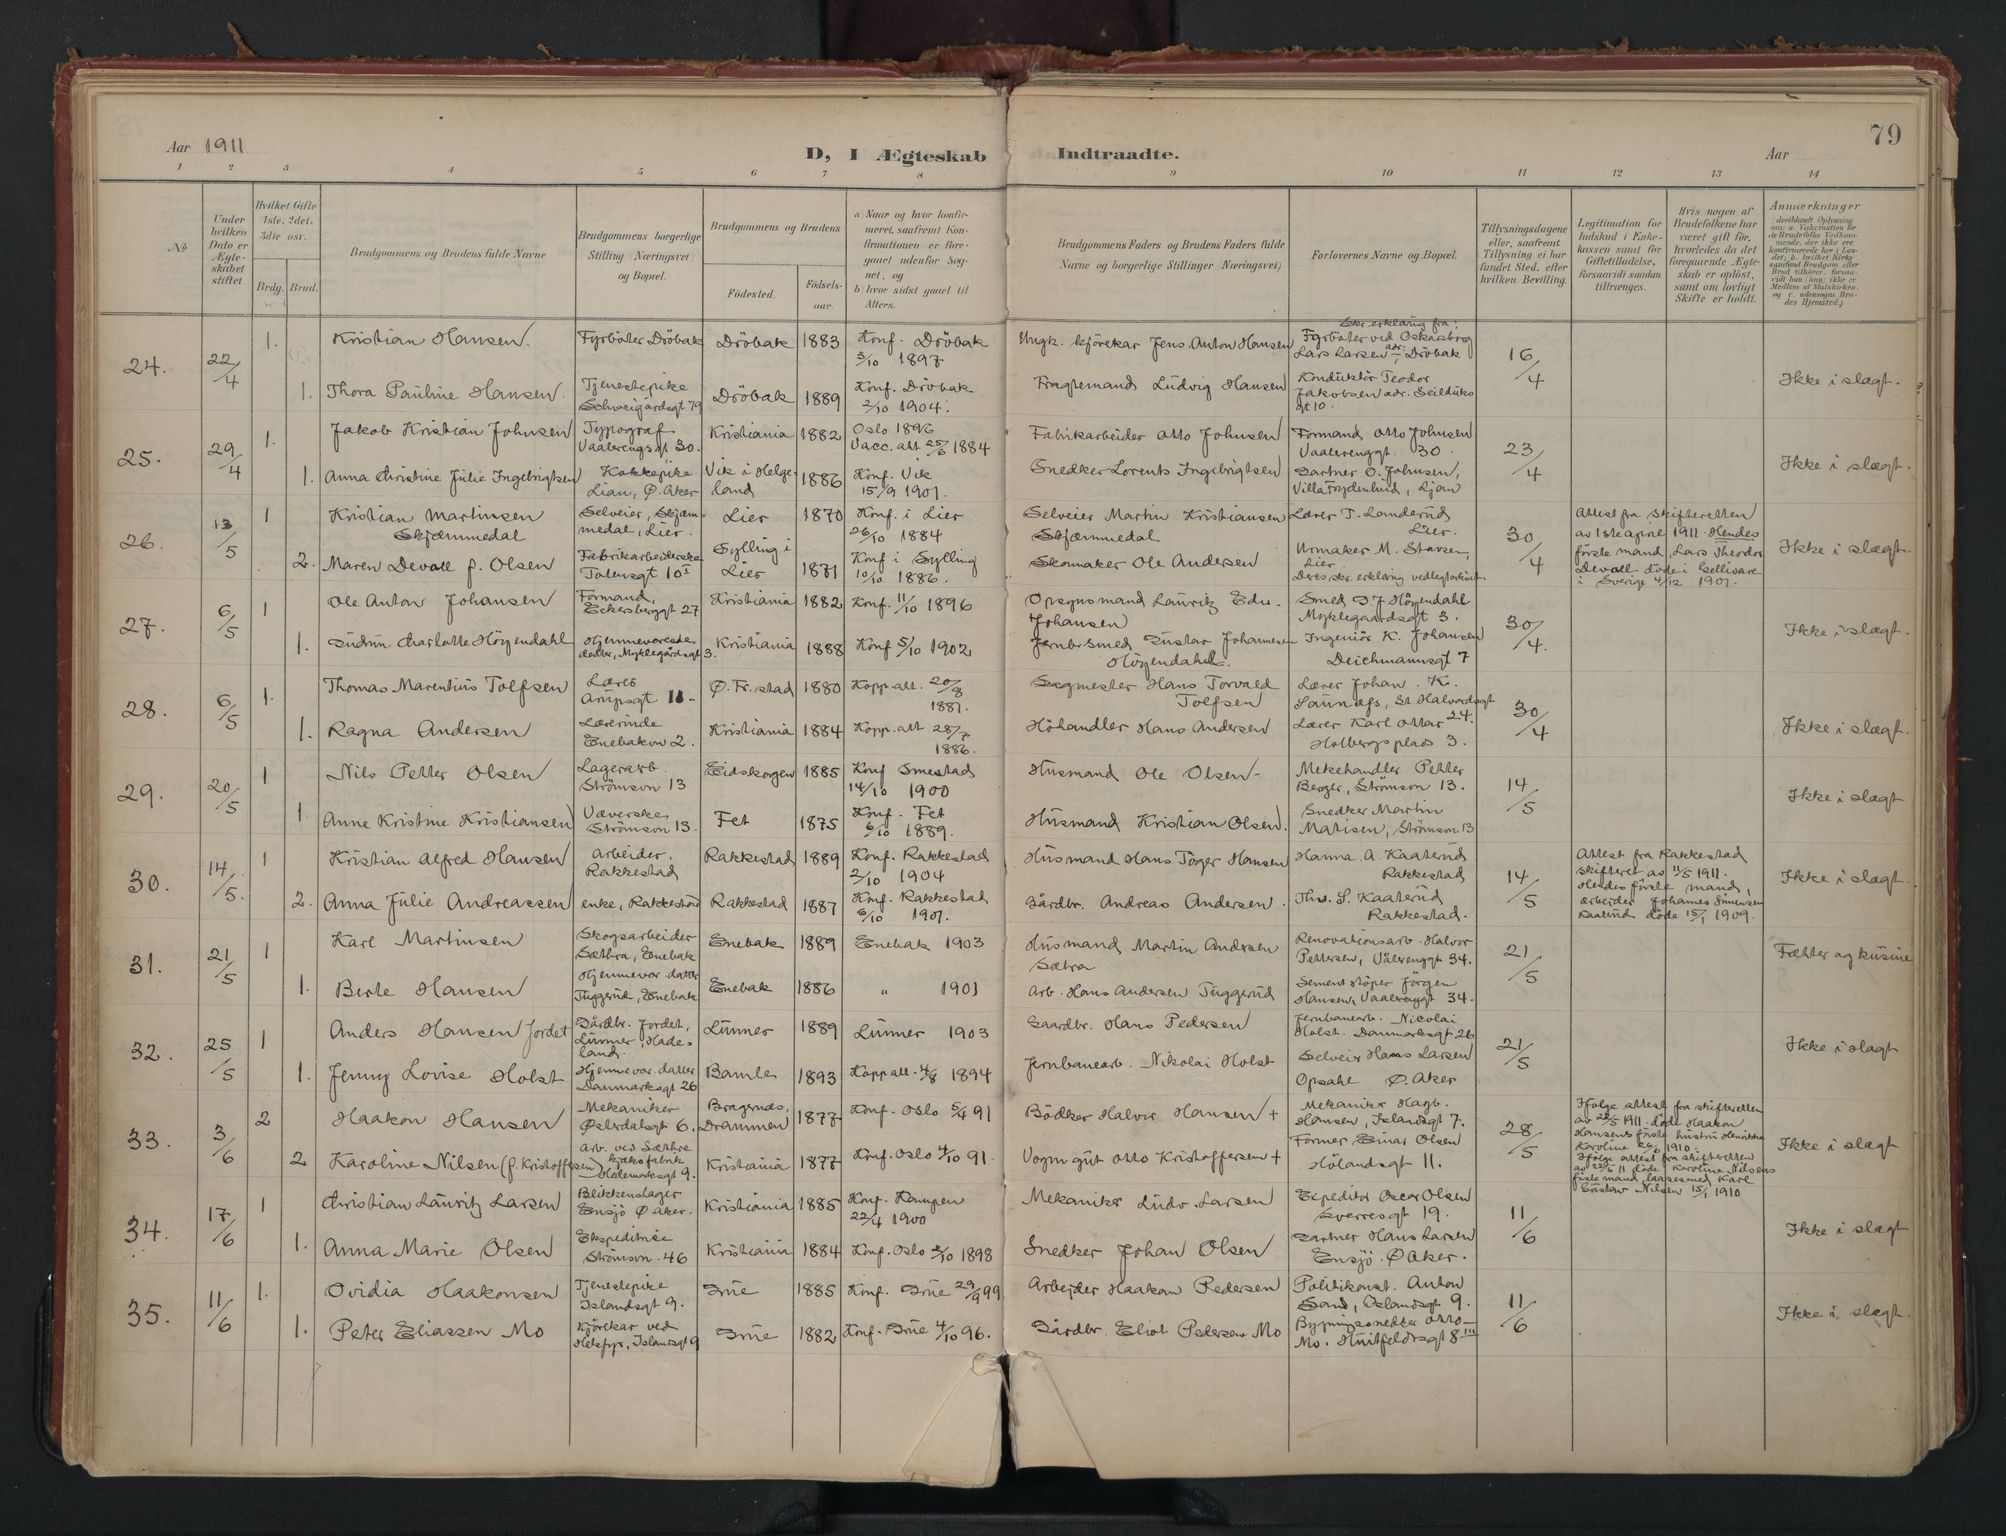 79
Aar 1911
D, I Ægteskab Indtraadte.
Aar
1 2 3 4 5 6 7 8 9 10 11 12 13 14
No
Under hvilken Dato er Ægteskabet stiftet
Hvilket Gifte 1ste, 2det, 3die osv.
Brdg. Brud.
Brudgommens og Brudens fulde Navne
Brudgommens borgerlige Stilling (Næringsvei) og Bopæl.
Brudgommens og Brudens
Fødested.
Fødselsaar.
a) Naar og hvor konfirmeret, samt om Konfirmationen er foregaaet udenfor Sognet, og
b) hvor sidst gaaet til Alters.
Brudgommens Faders og Brudens Faders fulde Navne og borgerlige Stillinger (Næringsvei)
Forlovernes Navne og Bopæl.
Tillysningsdagene eller, saafremt Tillysning ei har fundet Sted, efter hvilken Bevilling.
Legitimation for Indskud i Enkekassen samt for Giftetilladelse, forsaavidt saadan tiltrænges.
Hvis nogen af Brudefolkene har været gift før, hvorledes da det foregaaende Ægteskab er opløst, samt om lovligt Skifte er holdt.
Anmærkninger
24. 22/4 1. Kristian Hansen. Fyrbøter Dröbak Dröbak 1883 Konf. Dröbak 3/10 1897 Ungk. kjörekar Jens Anton Hansen Skr. erklæring fra: Fyrbøter ved Oskarsborg Lars Larsen adr. Dröbak 16/4 Ikke i slagt.
1. Thora Pauline Hansen. Tjenestepike Schweigårdsgt 79 Dröbak 1889 Konf. Dröbak 2/10 1904. Fragtemand Ludvig Hansen Konduktör Teodor Jakobsen adr. Seilduks gt 10.
25. 29/4 1. Jakob Kristian Johnsen Typograf Vaalerengsgt 30. Kristiania 1882 Oslo 1896 Vacc. att 25/6 1884 Fabrikarbeider Otto Johnsen Formand Otto Johnsen Vaalerenggt. 30. 23/4 Ikke i slægt.
1. Anna Christine Julie Ingebrigtsen Kokkepike Lian, Ø. Aker Vik i Helgeland 1886 Konf. Vik 15/9 1901. Snedker Lorents Ingebrigtsen Gartner O. Johnsen, Villa Frydenlund, Ljan
26. 13/5 1 Kristian Martinsen Skjæmmedal Selveier, Skjæmmedal, Lier. Lier 1870 Konf. i Lier 26/10 1884 Selveier Martin Kristiansen Skjæmmedal Lærer T. Landerud Lier. 30/4 Attest fra Skifteretten av 1ste april 1911. Hendes förste mand, Lars Theodor Devall döde i Gellivare i Sverige 4/12 1901. Ikke i slægt.
2. Maren Devall f. Olsen Fabrikarbeiderske Tolensgt 10 I Sylling i Lier 1871 Konf i Sylling 10/10 1886. Skomaker Ole Andersen Urmaker M. Lier. Deres skr. erklæring vedlagt
27. 6/5 1 Ole Anton Johansen Formand, Eckersberggt 27 Kristiania 1882 Konf. 11/10 1896 Opsynsmand Lauritz Edv. Johansen Smed G J Höyendahl Myklegaardsgt 3. 30/4. Ikke i slægt.
1. Gudrun Charlotte Höyendahl Hjemmeværende datter, Myklegårdsgt 3. Kristiania 1888 Konf 5/10 1902 Jernb. smed Gustav Johannesen Höyendahl. Ingeniör K. Johansen Deichmannsgt 7
28. 6/5 1. Thomas Marentius Tolfsen Lærer Arupsgt 11 Ø. Fr.stad 1880 Kopp. att. 20/8 1881. Segmester Hans Torvald Tolfsen Lærer Johan K. St Halvardsgt 24. 30/4 Ikke i slægt.
1. Ragna Andersen Lærerinde Enebakvn 2. Kristiania 1884 Kopp. att 28/7 1886. Höhandler Hans Andersen Lærer Karl Ottar Holbergs plads 3.
29. 20/5 1 Nils Petter Olsen Lagerarb. Strömsvn 13 Eidskogen 1885 Konf Smestad 14/10 1900 Husmand Ole Olsen Melkehandler Petter Berger, Strömsvn 13. 14/5 Ikke i slægt
1. Anne Kristine Kristiansen Væverske Strömsvn 13. Fet 1875 Konf. Fet 6/10 1889. Husmand Kristian Olsen. Snedker Martin Matisen, Strömsvn. 13
30. 14/5. 1 Kristian Alfred Hansen Arbeider. Rakkestad Rakkestad 1889 Konf. Rakkestad 2/10 1904 Husmand Hans Torger Hansen Hanna. A. Kaaterud Rakkestad 14/5 Attest fra Rakkestad skifteret av 11/5 1911. Hendes förste mand, arbeider Johannes Simensen Kaaterud döde 15/1 1909. Ikke i slægt.
2. Anna Julie Andreassen enke, Rakkestad Rakkestad 1887 Konf. Rakkestad 6/10 1901. Gårdbr. Andreas Andersen. Ths. S. Kaaterud Rakkestad.
31. 21/5 1 Karl Martinsen Skogsarbeider Sæthra, Enebak Enebak 1889 Enebak 1903 Husmand Martin Andersen Sætra Renovationsarb. Halvor Pettersen, Vålerenggt 34. 21/5 Fætter og kusine
1. Berte Hansen Hjemmevær. datter Tuggerud, Enebak Enebak 1886 " 1901 Arb. Hans Andersen Tuggerud Sementstöper Jörgen Hansen Vaalerenggt 34.
32. 25/5 1 Anders Hansen Jordet Gårdbr. Jordet, Lunner, Hadeland. Lunner 1889 Lunner 1903 Gaardbr. Hans Pedersen Jernbanearb. Nicolai Holst. Danmarksgt 26 21/5 Ikke i slagt
1. Jenny Lovise Holst Hjemmevær. datter Danmarksgt 26 Bamle 1893 Kopp att. 4/8 1894 Jernbanearb. Nikolai Holst Selveier Hans Larsen Opsahl Ø. Aker
33. 3/6 2 Haakon Hansen Mekaniker Østerdalsgt 6. Bragernes, Drammen 1877 Konf. Oslo 5/4 91 Bödker Halvor Hansen + Mekaniker Hagb. Hansen, Islandsgt 7. 28/5 Ifölge attest fra skifteretten av 22/5 1911 döde Haakon Hansens förste hustru Henrikke Karoline 26/6 1910. Ifölge attest fra skifteretten av 22/5 11 döde Karoline Nilsens förste mand, laasesmed Karl Gustav Nilsen 15/1 1910 Ikke i slægt
2 Karoline Nilsen (f. Kristoffersen) Arb. ved Sæthre kjæksfabrik Hedemarksgt 9. Kristiania 1877 Konf. Oslo 4/10 91. Vogmgut Otto Kristoffersen + Former Einar Olsen Hölandsgt 11.
34. 17/6 1 Christian Lauritz Larsen Blikkenslager Ensjö Ø Aker. Kristiania 1885 Konf. Kampen 22/4 1900 Mekaniker Ludv. Larsen Expeditör Oscar Olsen Sverresgt 19. 11/6 Ikke i slægt
1. Anna Marie Olsen Ekspeditrise Strömsvn. 46 Kristiania 1884 Konf. Oslo 2/10 1898 Snedker Johan Olsen Gartner Hans Larsen Ensjö. Ø Aker.
35. 11/6 1. Ovidia Haakonsen Tjenestepike Islandsgt 9. Grue 1885 Konf. Grue 29/9 99 Arbejder Haakon Pedersen Politikonst. Anton Sand, Islandsgt 9. 11/6 Ikke i slægt.
1. Peter Eliassen Mo Kjörekar ved Helsfyr, Islandsgt 9 Grue 1882 Konf. Grue 4/10 96. Gårdbr. Eliot Pedersen Mo Bygningssnedker Otto Mo. Huitfeldtsgt 8 III